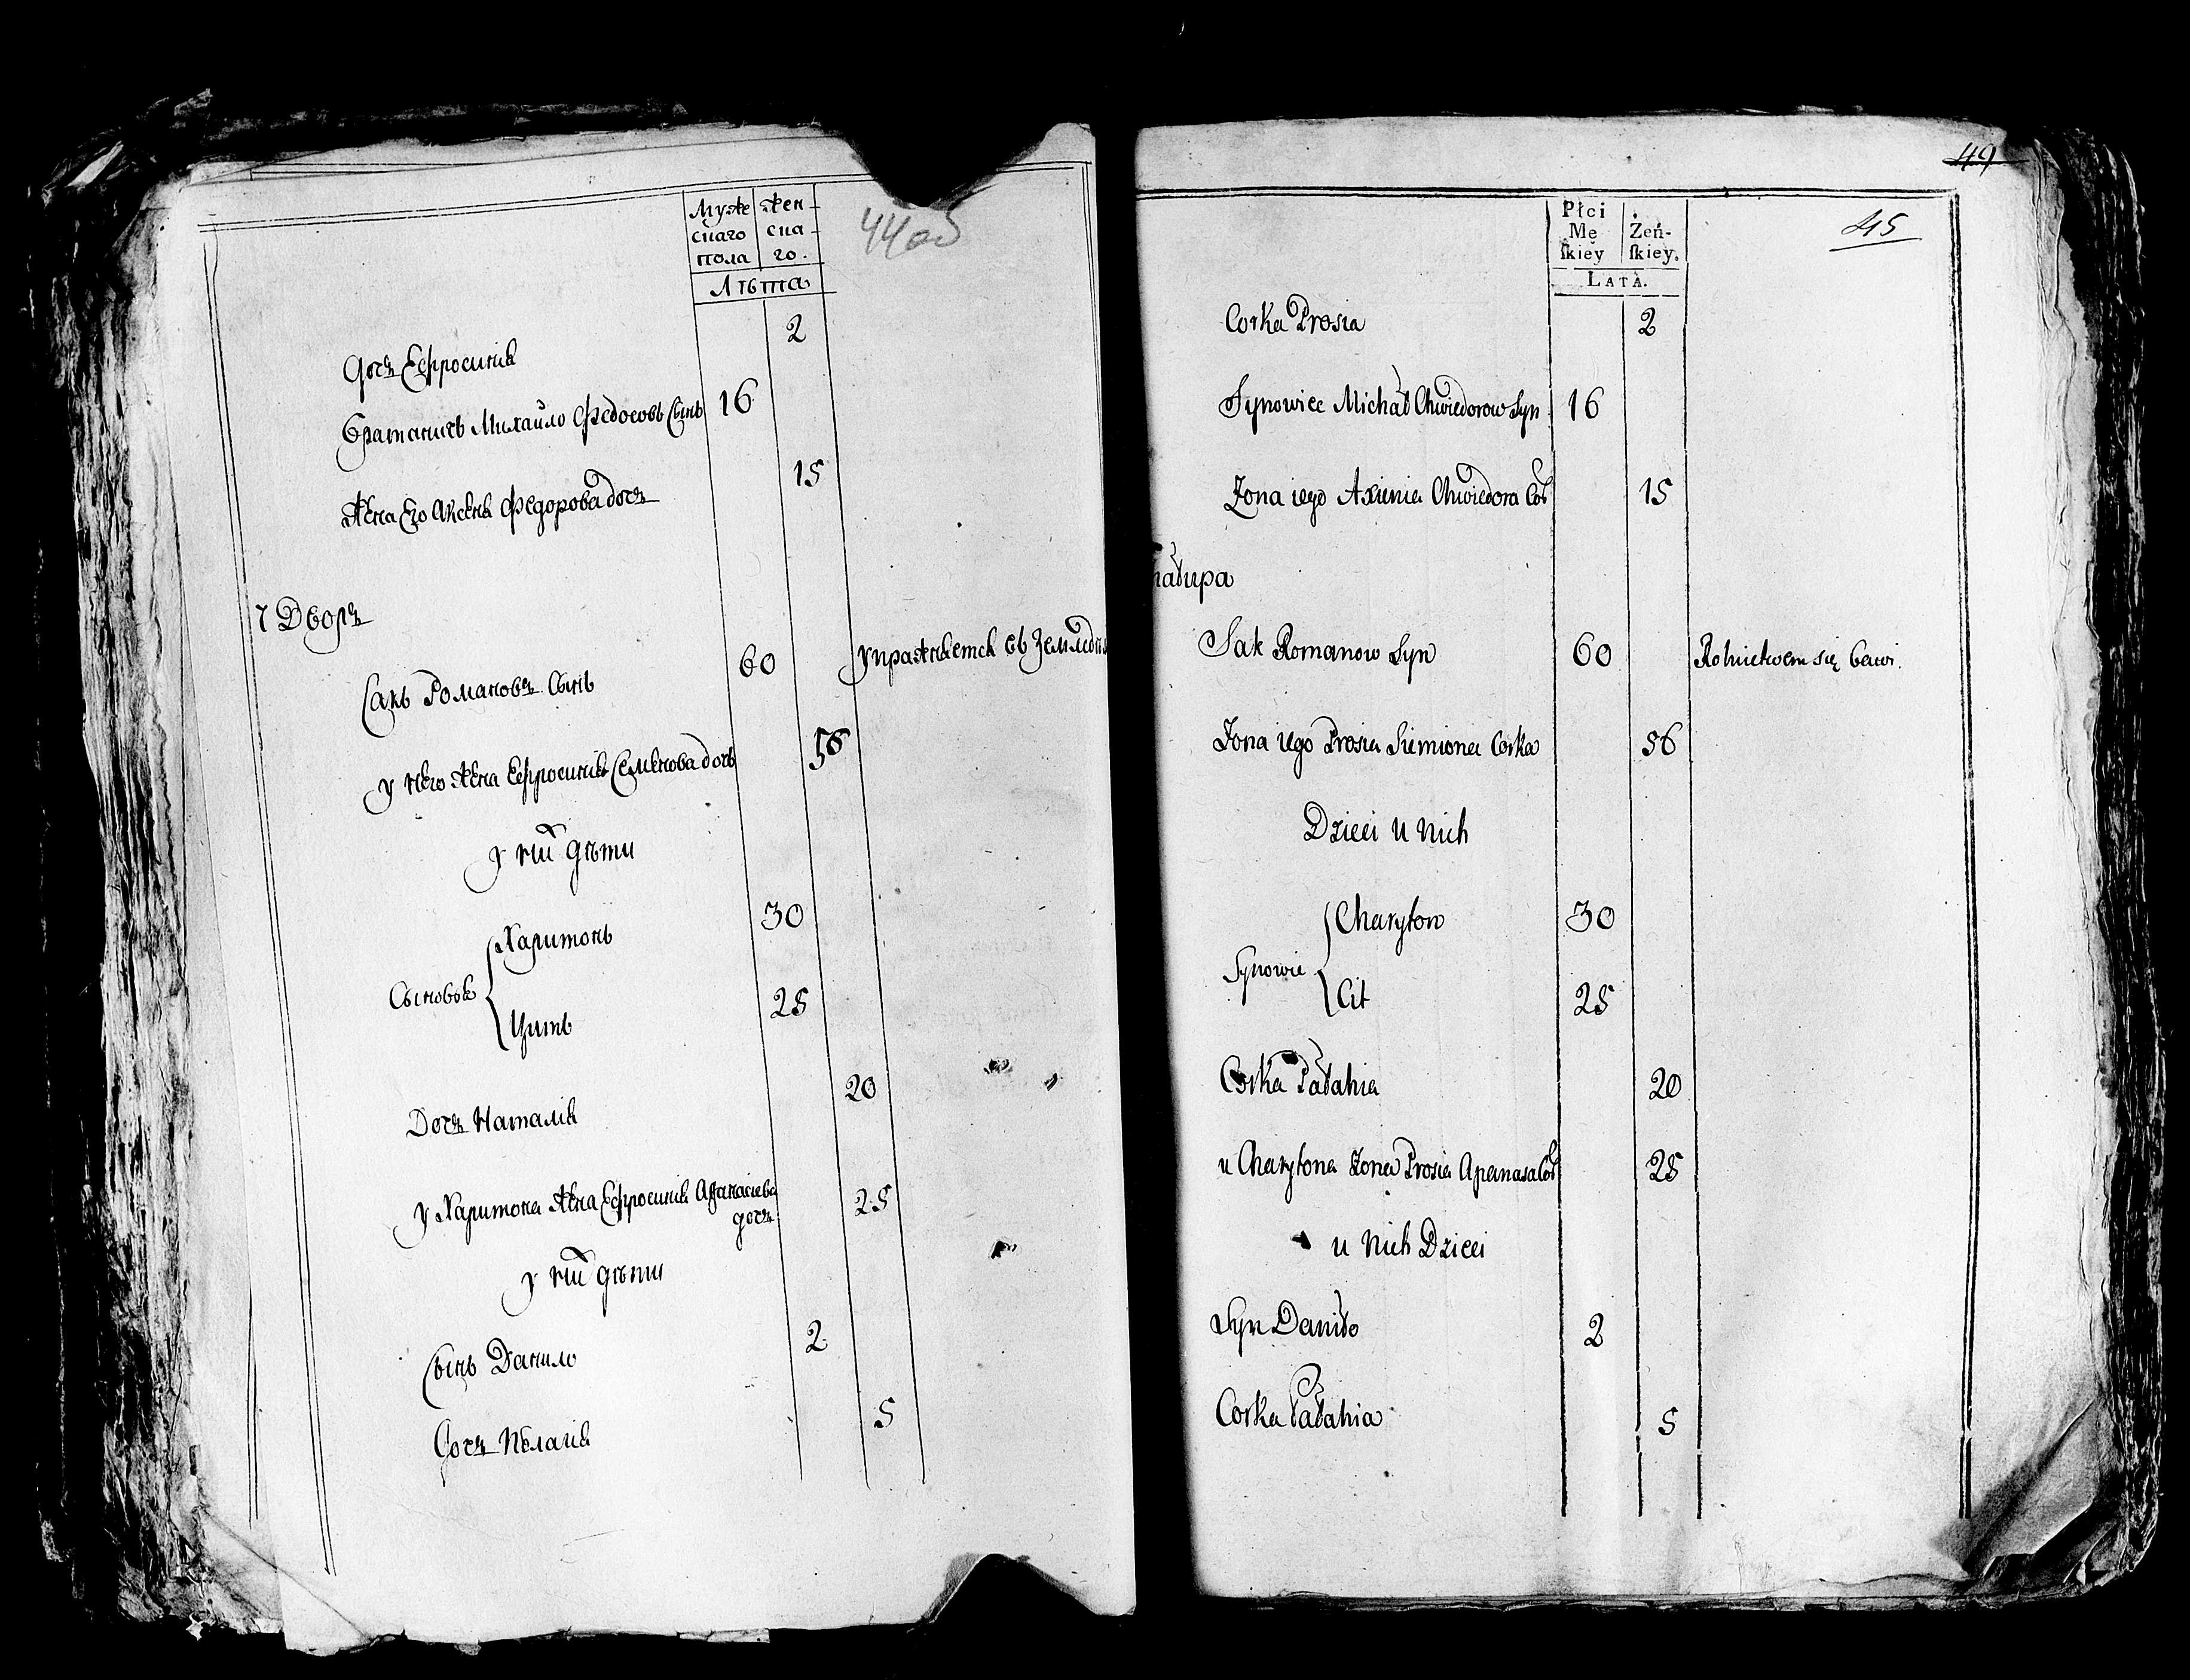 Муже
скаго
пола
Жен-
ска-
го.
Лѣта
44об
дочь Ефросиния 2
братаничъ Михайло Федосовъ Сынъ 16
Жена Его Аксеня Федорова дочь 15
7 Дворъ
Сакъ Романовъ Сынъ 60 упражняется въ
у Него Жена Ефросиния Семенова дочь 56
у них дѣти
Сыновья
Харитонъ 30
Цитъ 25
Дочь Наталія 20
у Харитона Жена Ефросиния Афанасиева
дочь 25
у них дѣти
Сынъ Данило 2
Дочь Пелагия 5
49
45
Płci
Mę
ſkiey
Żeń-
ſkiey.
LATA.
Corka Prosia 2
Synowiec Michał Chwiedorow Syn 16
Zona iego Axienia Chwiedora Cór 15
Sak Romanow Syn 60 Rolnictwem się bawi.
Zona iego Prosia Siemiona Corka 56
Dzieci u nich
Synowie
Charyton 30
Cit 25
Corka Pałahia 20
u Charytona Zona Prosia Apanasa Cór 25
u nich Dzieci
Syn Daniło 2
Corka Pałahia 5